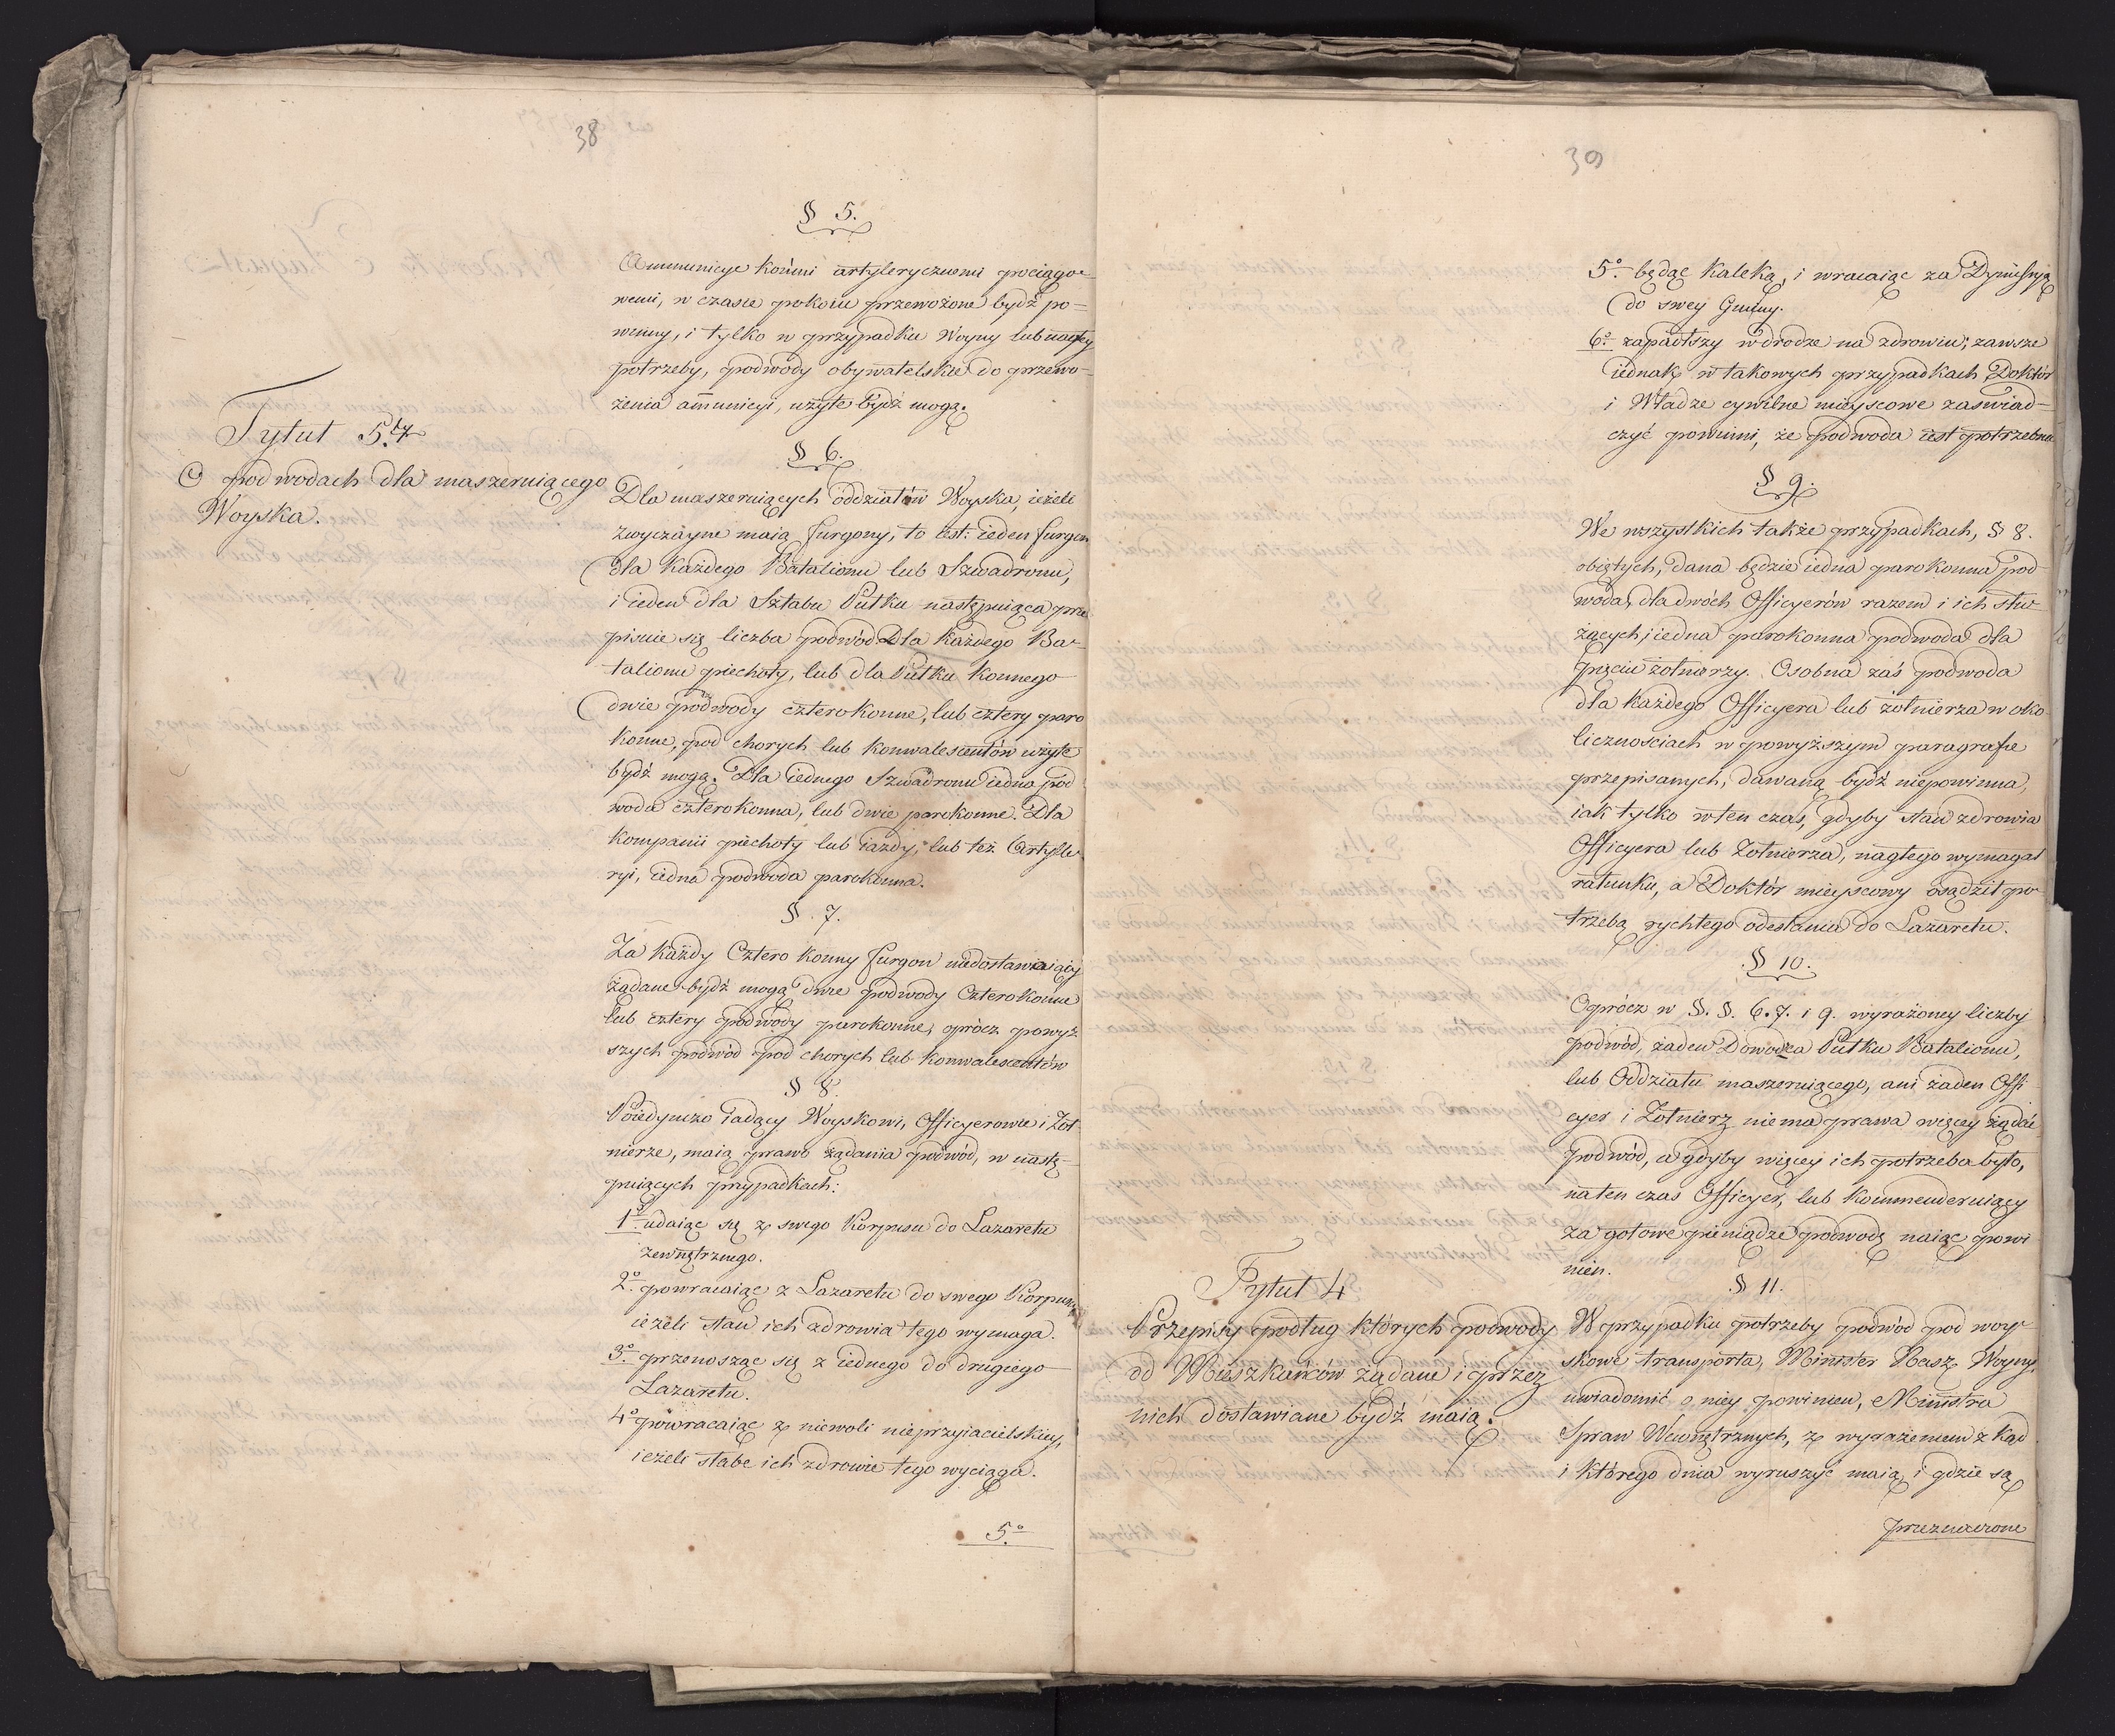 38
§ 5.
Ammunicye końmi artylerycznemi pociągo-
wemi, w czasie pokoiu przewożone bydź po-
winny, i tylko w przypadku Woyny lub nagłey
potrzeby, podwody obywatelskie do przewo-
żenia am̄unicyi, użyte bydź mogą.
Tytuł 5.ty
O podwodach dla maszeruiącego
Woyska.
§ 6.
Dla maszeruiących oddziałów Woyska, ieżeli
zwyczayne maią furgony, to iest: ieden furgon
dla każdego Batalionu lub Szwadronu,
i ieden dla Sztabu Pułku następuiąca prze
pisuie się liczba podwód Dla każdego Ba-
talionu piechoty, lub dla Pułku konnego
dwie podwody czterokonne, lub cztery paro
konne, pod chorych lub konwalescentów użyte
bydź mogą. Dla iednego Szwadronu iedna pod
woda czterokonna, lub dwie parokonne. Dla
kompanii piechoty lub iazdy, lub też Artylle
ryi, iedna podwoda parokonna.
§. 7.
Za każdy Cztero konny furgon niedostawaiący
żądane bydź mogą dwie podwody Czterokonne
lub cztery podwody parokonne, oprócz powyż
szych podwód pod chorych lub konwalescentów
§ 8.
Poiedynczo iadący Woyskowi, Officyerowie i Żoł-
nierze, maią prawo żądania podwód, w nastę-
puiących przypadkach:
1.o udaiąc się z swego Korpusu do Lazaretu
zewnętrznego.
2.o powracaiąc z Lazaretu do swego Korpusu,
ieżeli stan ich zdrowia tego wymaga.
3.o przenosząc się z iednego do drugiego
Lazaretu.
4.o powracaiąc z niewoli nieprzyiacielskiey,
ieżeli słabe ich zdrowie tego wyciąga.
5.o
39
5.o będąc kaleką, i wracaiąc za Dymissyą
do swey Gminy.
6.o zapadłszy w drodze na zdrowiu; zawsze
iednak w takowych przypadkach Doktór
i Władze cywilne mieyscowe zaświad-
czyć powinni, że podwoda iest potrzebna
§ 9.
We wszystkich także przypadkach, § 8.
obiętych, dana będzie iedna parokonna pod-
woda, dla dwóch Officyerów razem i ich słu-
żących; iedna parokonna podwoda dla
pięciu żołnierzy. Osobna zaś podwoda
dla każdego Officyera lub żołnierza w oko
licznościach w powyższym paragrafie
przepisanych, dawaną bydź niepowinna,
iak tylko w ten czas, gdyby stan zdrowia
Officyera lub Żołnierza, nagłego wymagał
ratunku, a Doktór mieyscowy osądził po-
trzebą rychłego odesłania do Lazaretu.
§ 10.
Oprócz w §. §. 6. 7. i 9. wyrażoney liczby
podwód, żaden Dowódca Pułku Batalionu,
lub Oddziału maszeruiącego, ani żaden Offi-
cyer i Żołnierz niema prawa więcey żądać
podwód, a gdyby więcey ich potrzeba było,
naten czas Officyer, lub kommenderuiący
za gotowe pieniądze podwodę naiąć powi
nien.
Tytuł 4
Przepisy podług których podwody
od Mieszkańców żądane i przez
nich dostawiane bydź maią.
§ 11.
W przypadku potrzeby podwód pod woy-
skowe transporta, Minister Nasz Woyny,
uwiadomić o niey powinien, Ministra
Spraw Wewnętrznych, z wyrażeniem z kąd
i którego dnia wyruszyć maią, i gdzie są
przeznaczone